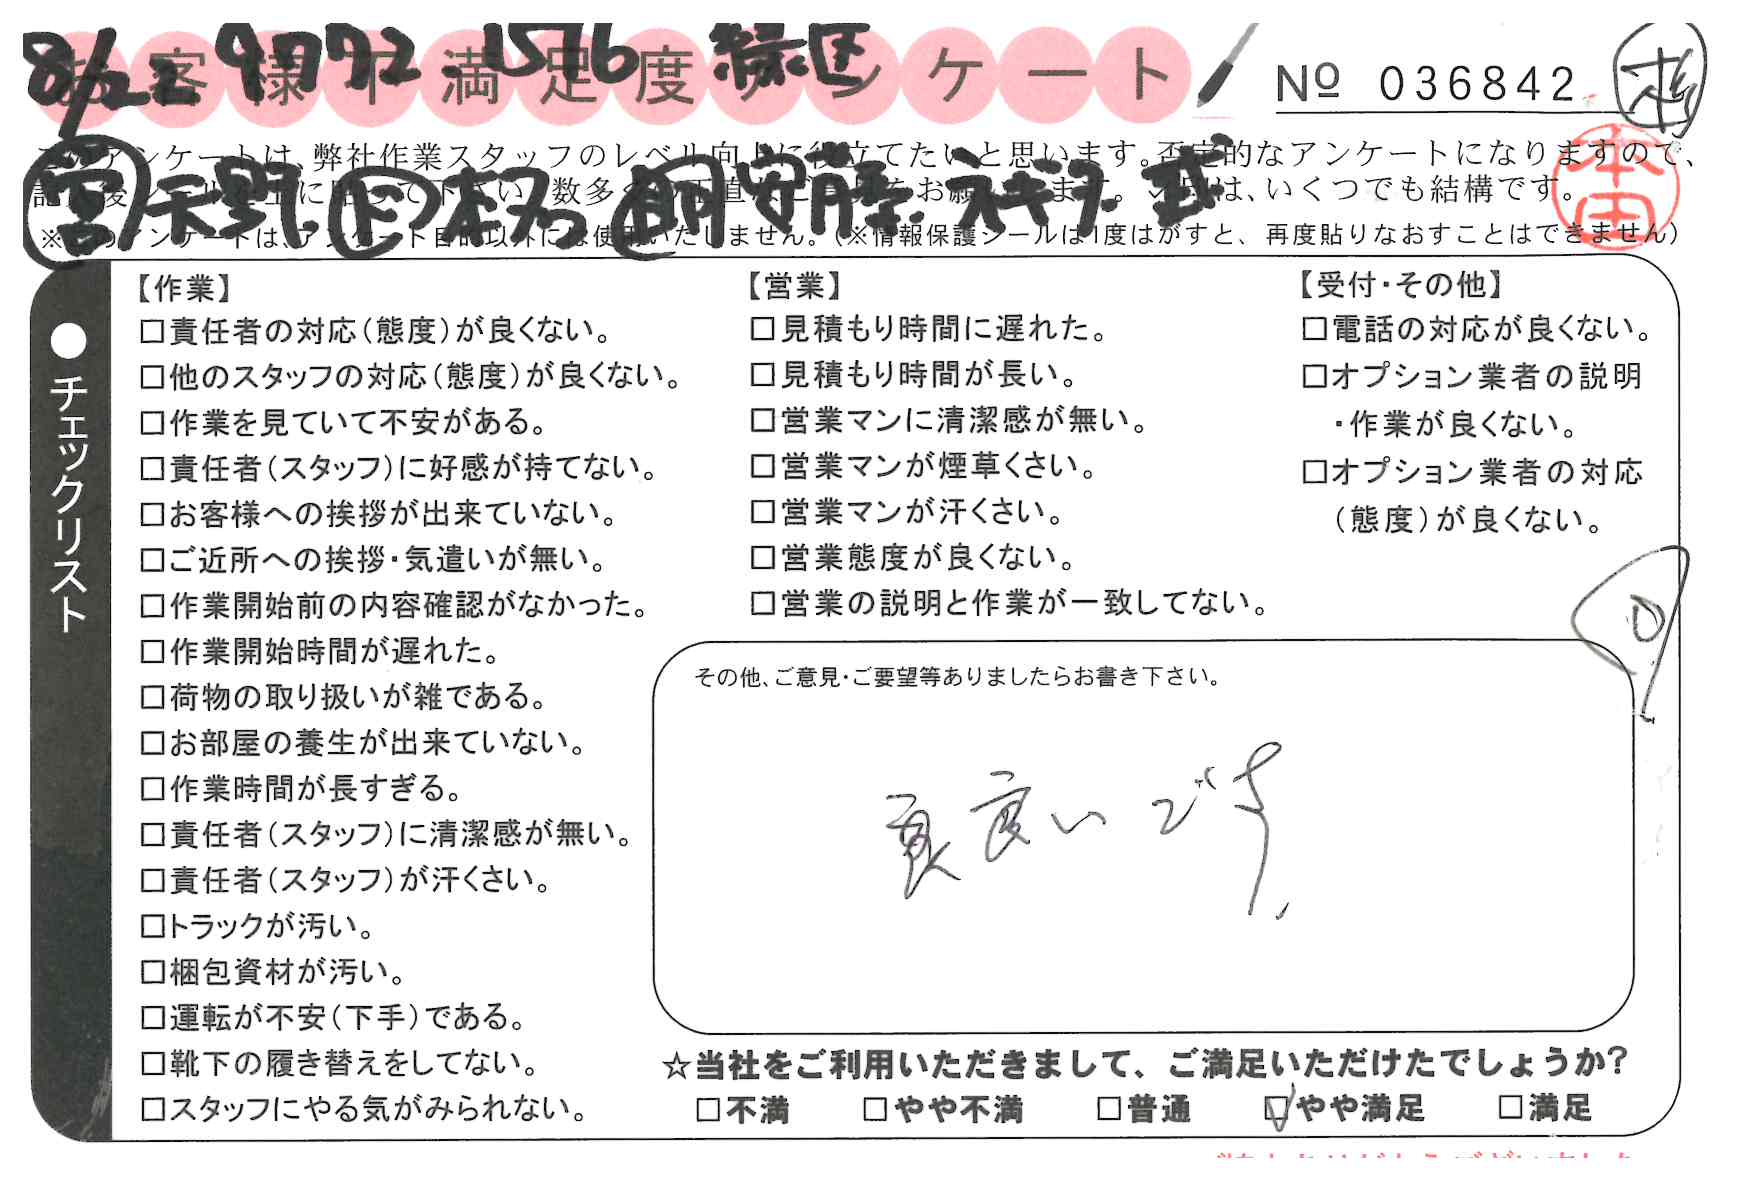 8/22 9772-1576 緑区
お客様不満足度アンケート
№ 036842
杉
このアンケートは、弊社作業スタッフのレベル向上に役立てたいと思います。否定的なアンケートになりますので、
数多くの正直なご意見をお願いします。〆切は、いくつでも結構です。
本田
営 天野
※このアンケートは、アンケート目的以外には使用いたしません。(※情報保護シールは1度はがすと、再度貼りなおすことはできません)
●チェックリスト
【作業】
□責任者の対応(態度)が良くない。
□他のスタッフの対応(態度)が良くない。
□作業を見ていて不安がある。
□責任者(スタッフ)に好感が持てない。
□お客様への挨拶が出来ていない。
□ご近所への挨拶・気遣いが無い。
□作業開始前の内容確認がなかった。
□作業開始時間が遅れた。
□荷物の取り扱いが雑である。
□お部屋の養生が出来ていない。
□作業時間が長すぎる。
□責任者(スタッフ)に清潔感が無い。
□責任者(スタッフ)が汗くさい。
□トラックが汚い。
□梱包資材が汚い。
□運転が不安(下手)である。
□靴下の履き替えをしてない。
□スタッフにやる気がみられない。
【営業】
□見積もり時間に遅れた。
□見積もり時間が長い。
□営業マンに清潔感が無い。
□営業マンが煙草くさい。
□営業マンが汗くさい。
□営業態度が良くない。
□営業の説明と作業が一致してない。
【受付・その他】
□電話の対応が良くない。
□オプション業者の説明
・作業が良くない。
□オプション業者の対応
(態度)が良くない。
その他、ご意見・ご要望等ありましたらお書き下さい。
良いです、
☆当社をご利用いただきまして、ご満足いただけたでしょうか?
□不満 □やや不満 □普通 ☑やや満足 □満足